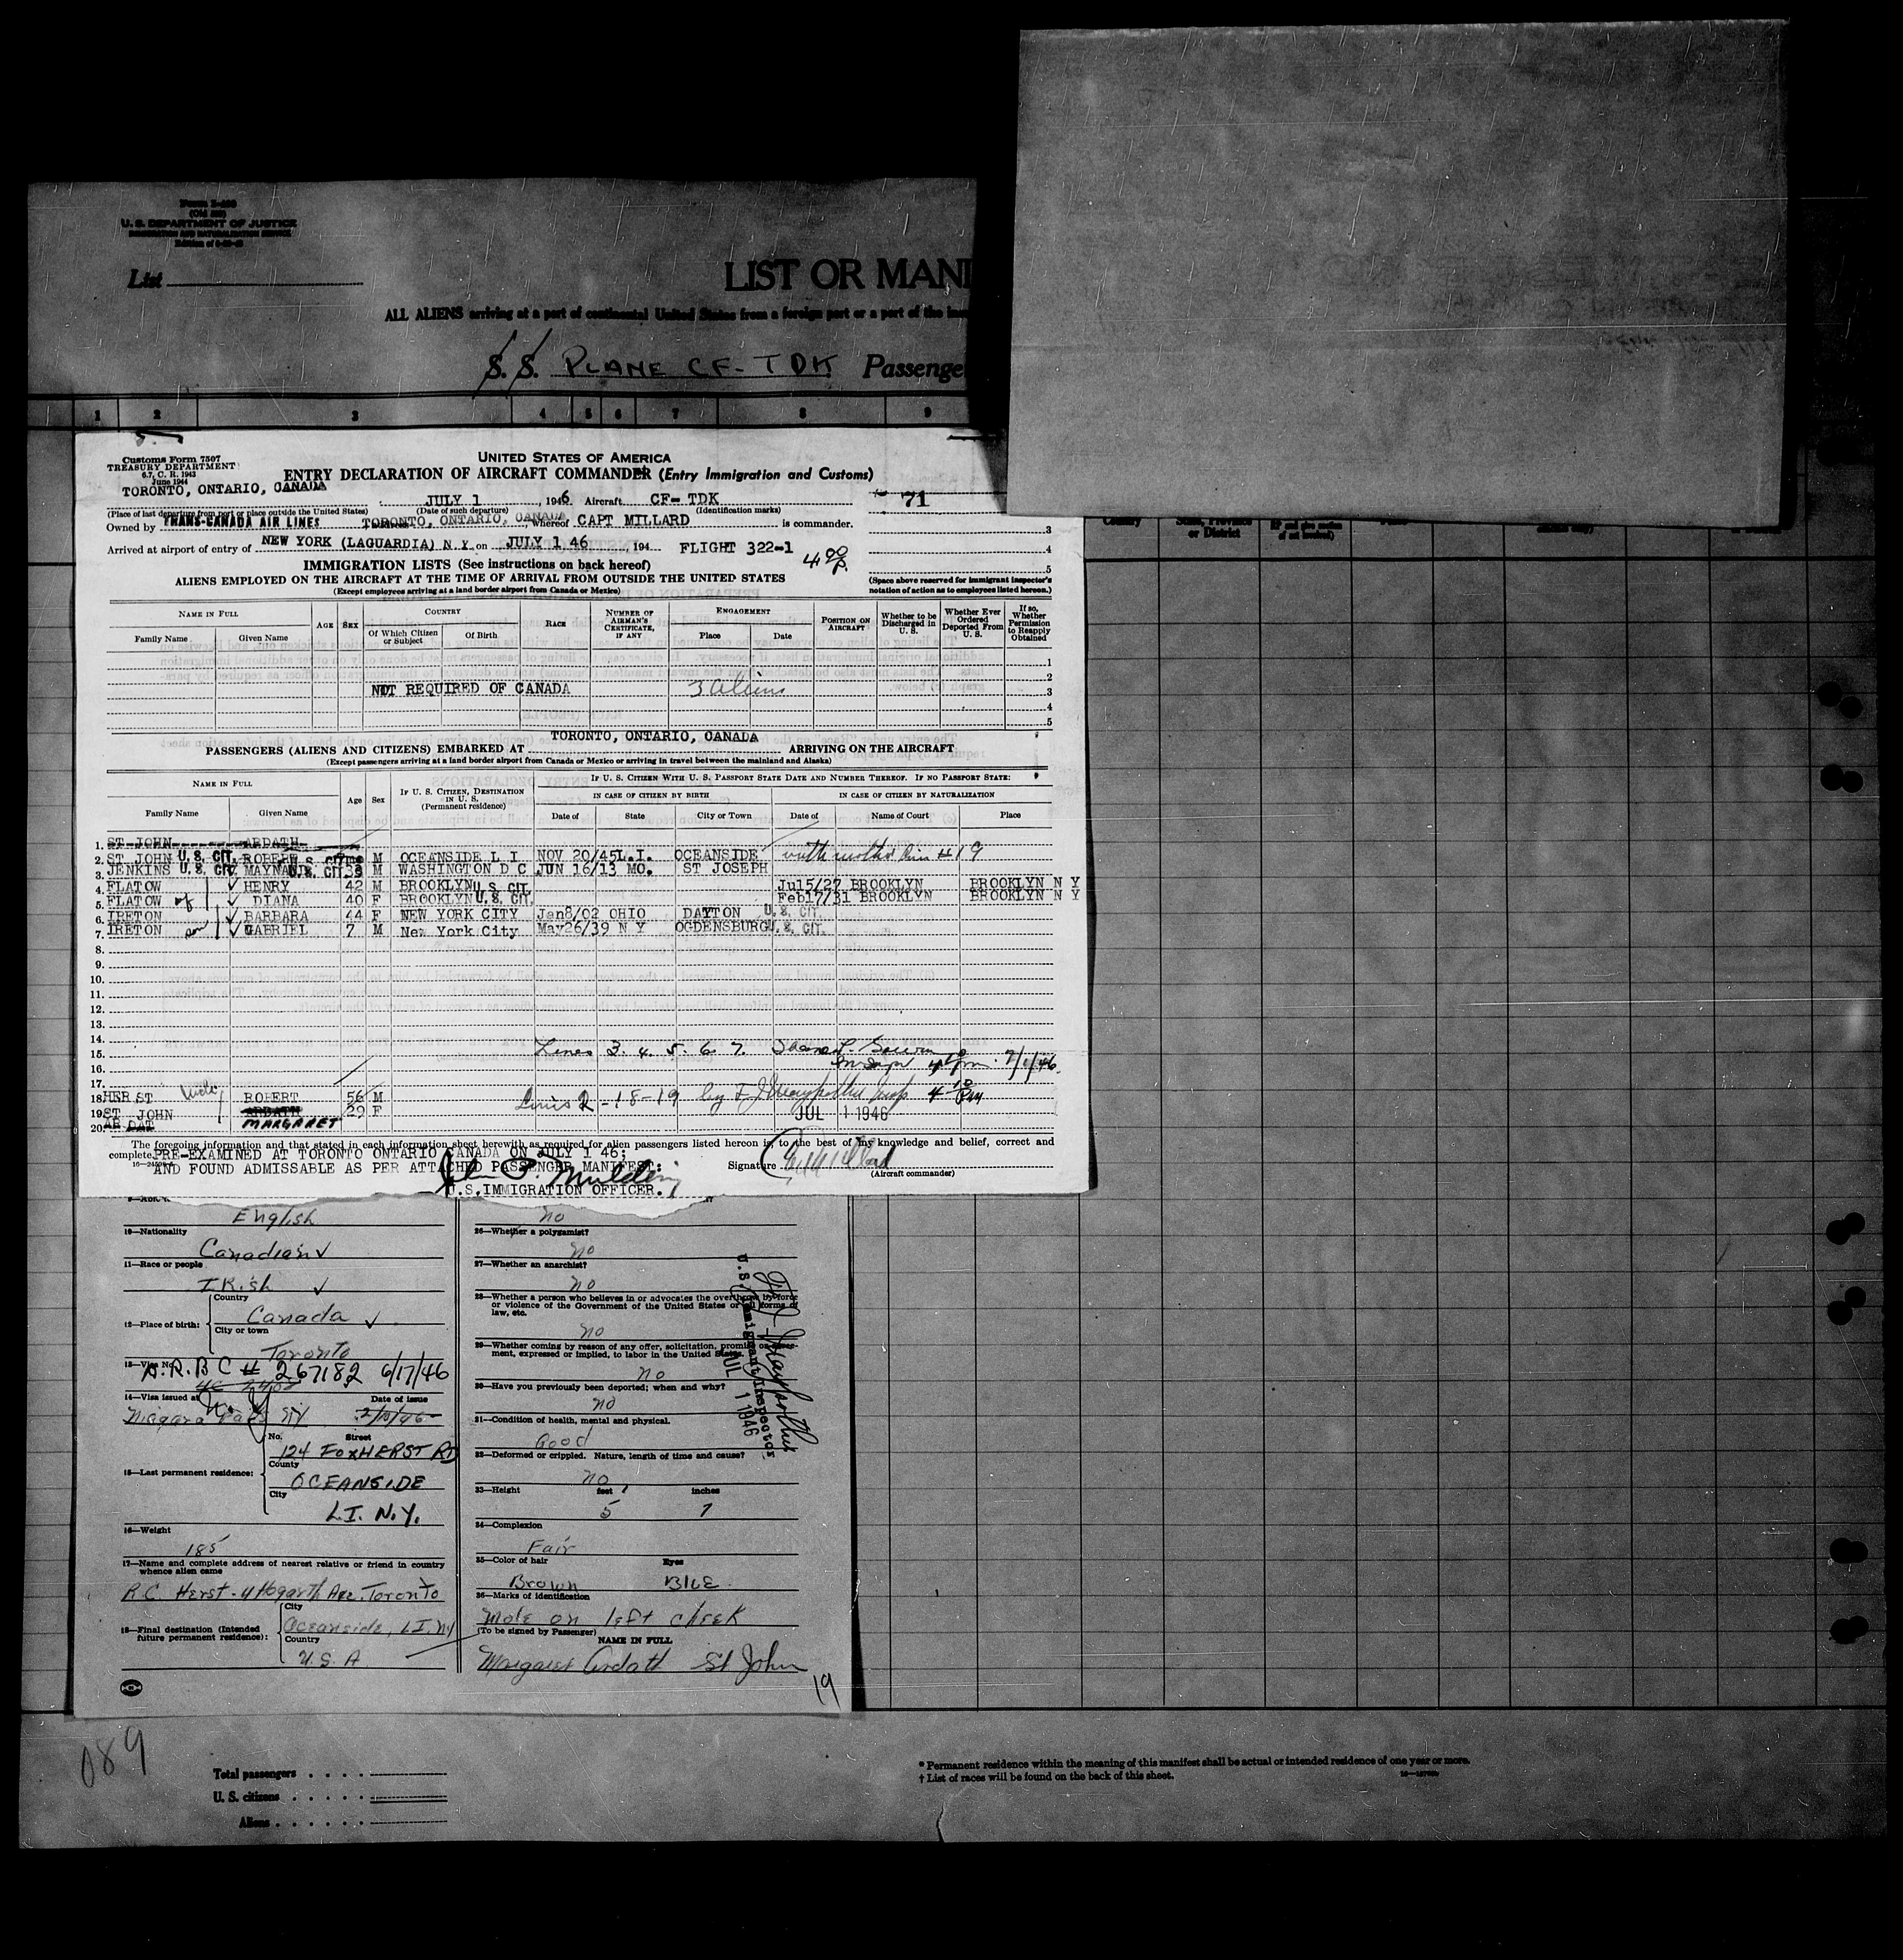 Form I-
(Old )
U. S. DEPARTMENT OF JUSTICE
IMMIGRATION AND NATURALIZATION SERVICE
List
LIST OR MANI
ALL ALIENS arriving at a port of continental United States from a foreign port or a port of the
S. S. PLANE CF-TDK Passenge
1 2 3 4 5 6 7 8 9
Customs Form 7507
TREASURY DEPARTMENT
6.7, C. R. 1943
June 1944
UNITED STATES OF AMERICA
ENTRY DECLARATION OF AIRCRAFT COMMANDER (Entry Immigration and Customs)
TORONTO, ONTARIO, CANADA JULY 1, 1946 Aircraft CF- TDK 71
(Place of last departure from port or place outside the United States) (Date of such departure) (Identification marks)
Owned by TRANS-CANADA AIR LINES TORONTO, ONTARIO, CANADA Whereof CAPT MILLARD is commander. 3
Arrived at airport of entry of NEW YORK (LAGUARDIA) N Y on JULY 1 46, 194 FLIGHT 322-1 4 00 P. 4
5
IMMIGRATION LISTS (See instructions on back hereof)
ALIENS EMPLOYED ON THE AIRCRAFT AT THE TIME OF ARRIVAL FROM OUTSIDE THE UNITED STATES
(Except employees arriving at a land border airport from Canada or Mexico)
(Space above reserved for immigrant inspector's notation of action as to employees listed hereon.)
NAME IN FULL AGE SEX COUNTRY RACE NUMBER OF AIRMAN'S CERTIFICATE, IF ANY ENGAGEMENT POSITION ON AIRCRAFT Whether to be Discharged in U. S. Whether Ever Ordered Deported From U. S. If so, Whether Permission to Reapply Obtained
Family Name Given Name Of Which Citizen or Subject Of Birth Place Date
1
2
NOT REQUIRED OF CANADA 3 aliens 3
4
5
TORONTO, ONTARIO, CANADA
PASSENGERS (ALIENS AND CITIZENS) EMBARKED AT ARRIVING ON THE AIRCRAFT
(Except passengers arriving at a land border airport from Canada or Mexico or arriving in travel between the mainland and Alaska)
NAME IN FULL Age Sex IF U. S. CITIZEN, DESTINATION IN U. S. (Permanent residence) IF U. S. CITIZEN WITH U. S. PASSPORT STATE DATE AND NUMBER THEREOF. IF NO PASSPORT STATE:
IN CASE OF CITIZEN BY BIRTH IN CASE OF CITIZEN BY NATURALIZATION
Family Name Given Name Date of State City or Town Date of Name of Court Place
1. ST JOHN ARDATH
2. ST JOHN U. S. CIT. ROBERT M OCEANSIDE L I NOV 20/45 L.I. OCEANSIDE with mother line #19
3. JENKINS U. S. CIT. MAYNARD U. S. CIT. 33 M WASHINGTON D C JUN 16/13 MO. ST JOSEPH
4. FLATOW HENRY 42 M BROOKLYN U. S. CIT. Jul5/27 BROOKLYN BROOKLYN N Y
5. FLATOW DIANA 40 F BROOKLYN U. S. CIT. Feb17/31 BROOKLYN BROOKLYN N Y
6. IRETON BARBARA 44 F NEW YORK CITY Jan8/02 OHIO DAYTON U. S. CIT.
7. IRETON son GABRIEL 7 M New York City May26/39 N Y OGDENSBURG U. S. CIT.
8.
9.
10.
11.
12.
13.
14.
15. Lines 3. 4. 5. 6. 7.
16. 7/1/46.
17.
18. HERST ROBERT 56 M Lines 2 - 18 - 19 by
19. ST JOHN ARDATH 29 F JUL 1 1946
20. MARGARET
The foregoing information and that stated in each information sheet herewith as required for alien passengers listed hereon is, to the best of my knowledge and belief, correct and
complete. PRE-EXAMINED AT TORONTO ONTARIO CANADA ON JULY 1 46;
AND FOUND ADMISSABLE AS PER ATTACHED PASSENGER MANIFEST: Signature
U.S. IMMIGRATION OFFICER. (Aircraft commander)
English
10—Nationality
Canadian
11—Race or people
IRish
12—Place of birth:
Country
Canada
City or town
Toronto
13—Visa No.
A.R.B C # 267182 6/17/46
14—Visa issued at Date of issue
Niagara Falls NY
No. Street
124 FOXHERST RD
15—Last permanent residence:
County
OCEANSIDE
City
L.I. N.Y.
16—Weight
185
17—Name and complete address of nearest relative or friend in country whence alien came
R.C. Herst - 4 Hogarth Ave. Toronto
18—Final destination (Intended future permanent residence):
City
Oceanside, L I. NY
Country
U. S. A
no
26—Whether a polygamist?
no
27—Whether an anarchist?
no
28—Whether a person who believes in or advocates the overthrow by force or violence of the Government of the United States or all forms of law, etc.
no
29—Whether coming by reason of any offer, solicitation, promise or agreement, expressed or implied, to labor in the United States.
no
30—Have you previously been deported; when and why?
no
31—Condition of health, mental and physical.
Good
32—Deformed or crippled. Nature, length of time and cause?
no
33—Height feet inches
5 7
34—Complexion
Fair
35—Color of hair Eyes
Brown BluE
36—Marks of identification
Mole on left cheek
(To be signed by Passenger)
NAME IN FULL
Margaret Ardath St John
19
U. S. Immigrant Inspector
JUL 1 1946
089
Total passengers
U. S. citizens
Aliens
* Permanent residence within the meaning of this manifest shall be actual or intended residence of one year or more.
† List of races will be found on the back of this sheet.